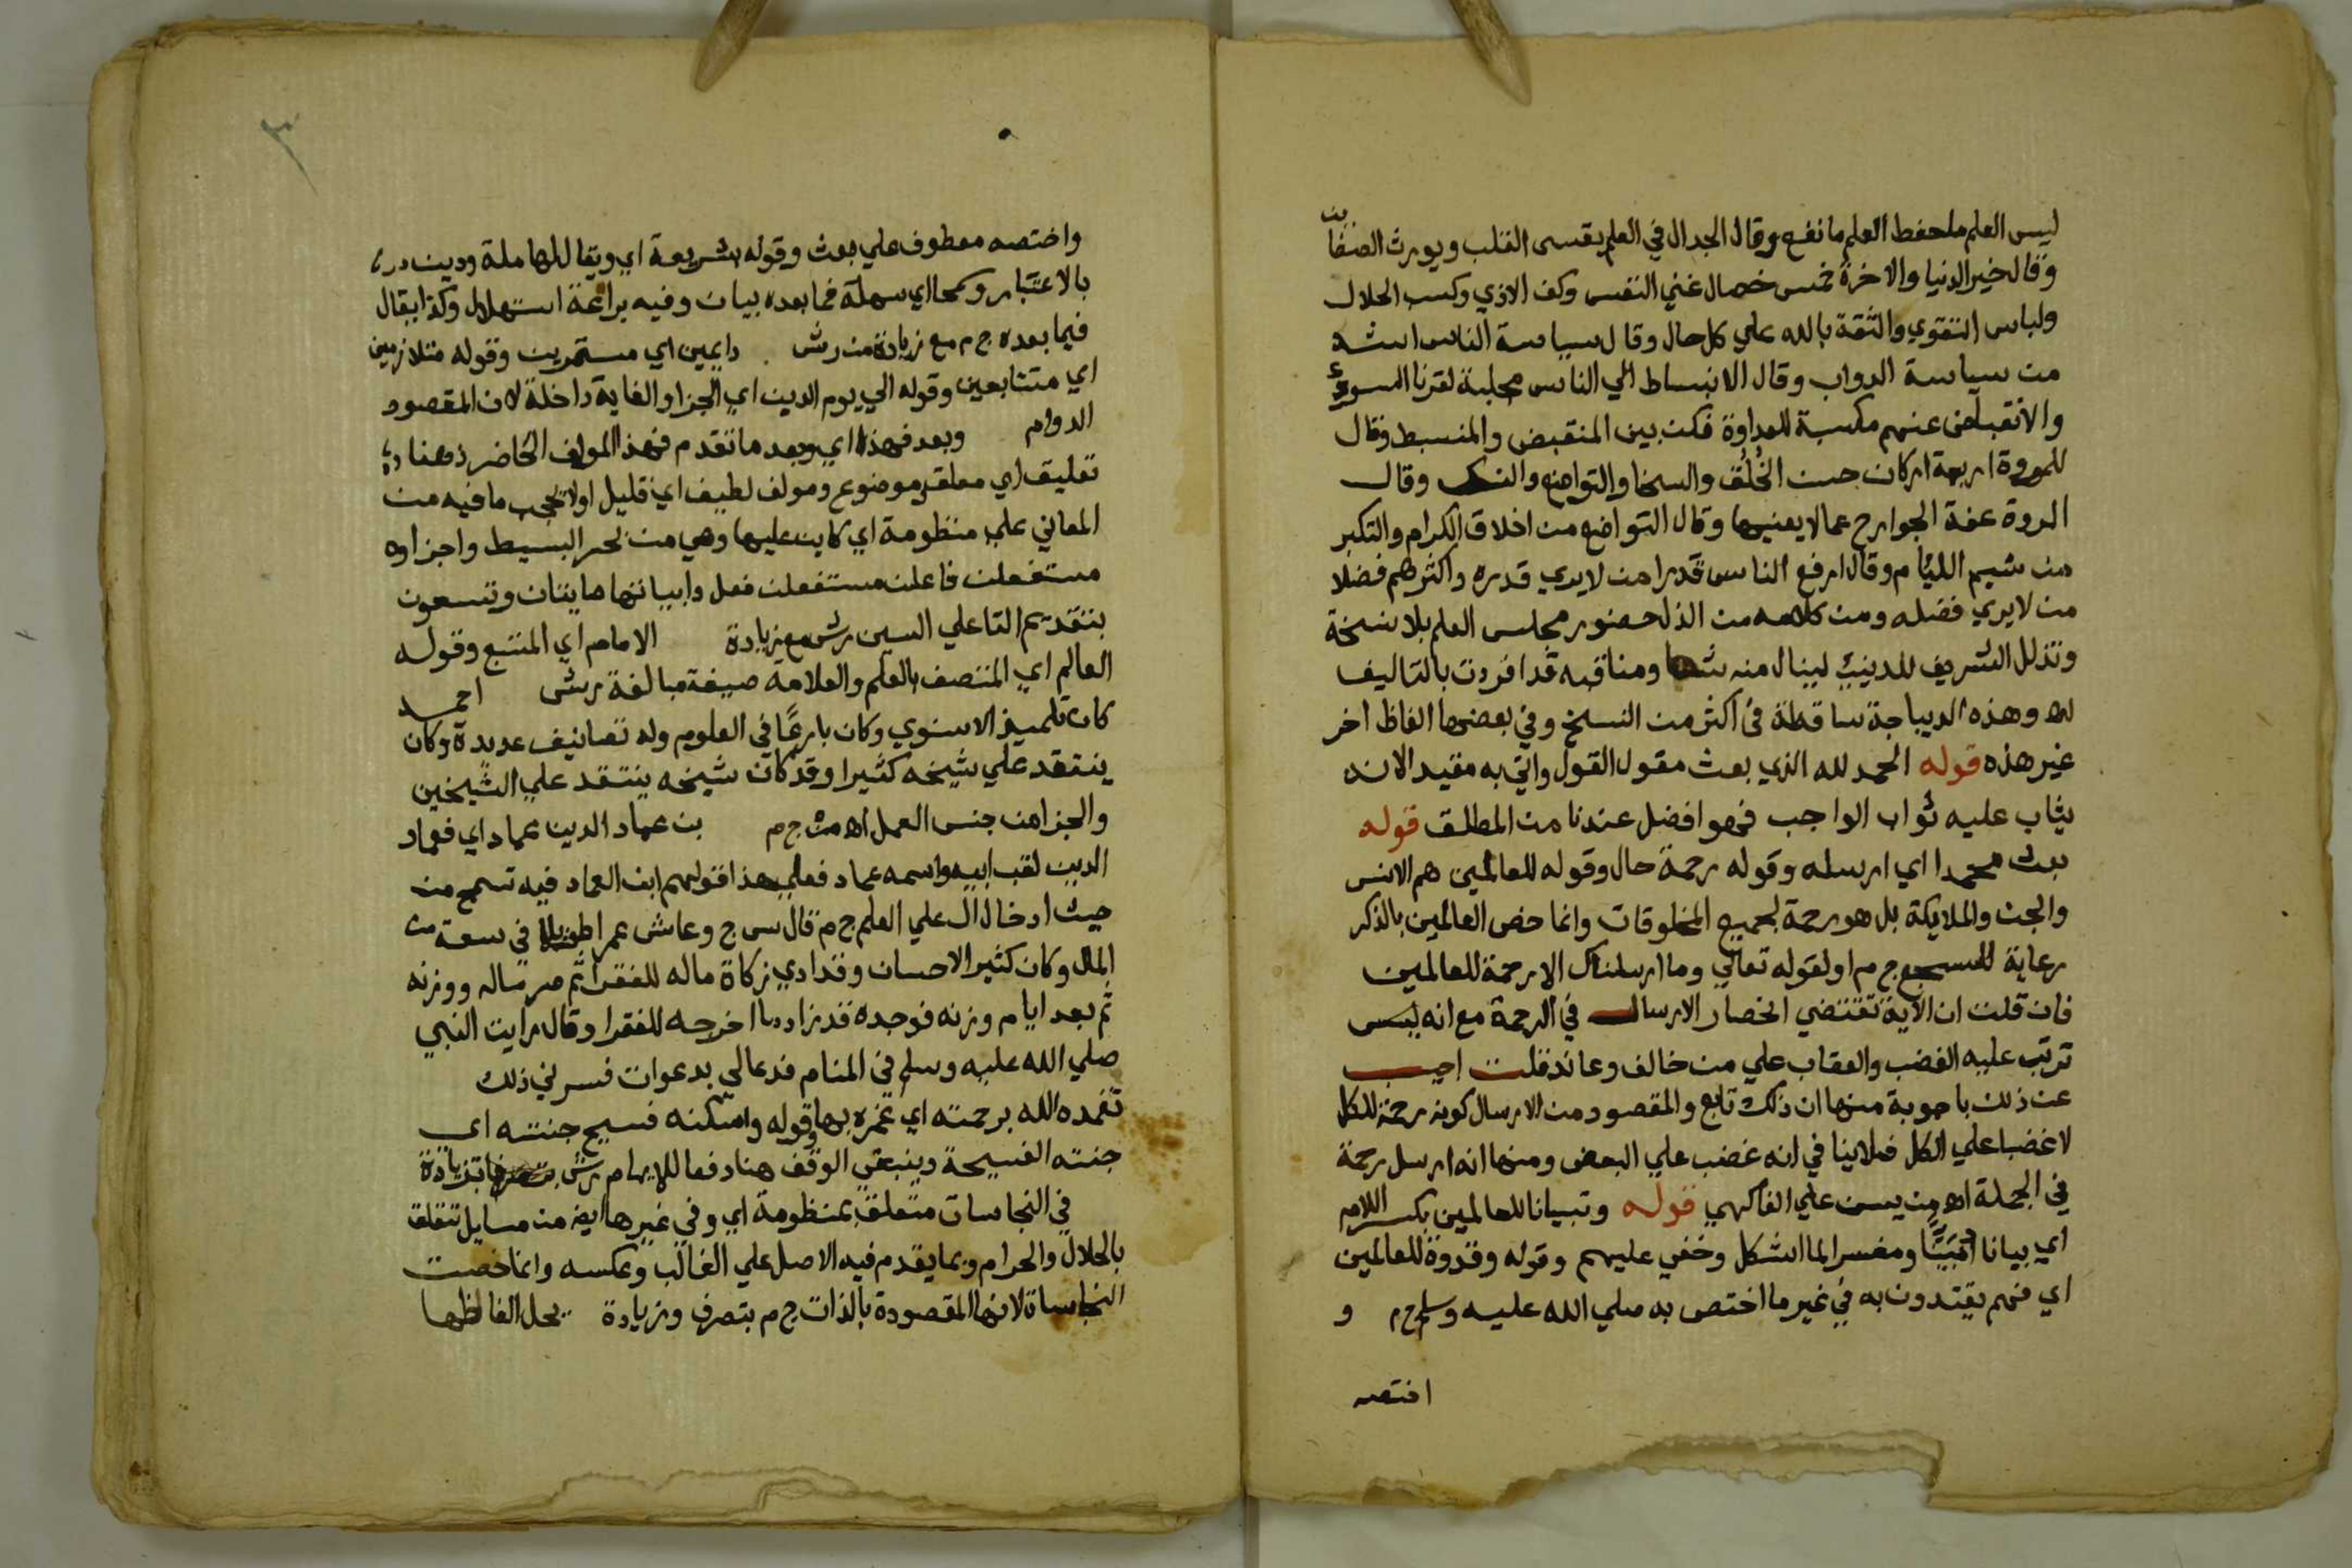 ليس العلم ما حفظ العلم ما نفع وقال الجدال في العلم يقسي القلب ويورث الضغاين
وقال خير الدنيا والاخرة خمس خصال غني النفس وكف الاذي وكسب الحلال
ولباس التقوي والثقة بالله علي كل حال وقال سياسة الناس اشد
من سياسة الدواب وقال الانبساط الي الناس مجلبة لقرنا السوء
والانقباض عنهم مكسبة للعداوة فكن بين المنقبض والمنبسط وقال
للمروة اربعة اركان حسن الخُلُق والسخا والتواضع والنسك وقال
المروة عفة الجوارح عما لا يعنيها وقال التواضع من اخلاق الكرام والتكبر
من شيم الليام وقال ارفع الناس قدرا من لا يري قدره واكثرهم فضلا
من لا يري فضله ومن كلامه من الذل حضور مجلس العلم بلا نسخة
وتذلل الشريف للدنيئ لينال منه شيئا ومناقبه قد افردت بالتاليف
اه وهذه الديباجة ساقطة في اكثر من النسخ وفي بعضها الفاظ اخر
غير هذه قوله الحمد لله الذي بعث مقول القول واتي به مقيد الانه
يثاب عليه ثواب الواجب فهو افضل عندنا من المطلق قوله
بعث محمدا اي ارسله وقوله رحمة حال وقوله للعالمين هم الانس
والجن والملايكة بل هو رحمة لجميع المخلوقات وانما خص العالمين بالذكر
رعاية للسجع ج م او لقوله تعالي وما ارسلناك الا رحمة للعالمين
فان قلت ان الاية تقتضي انحصار الارسال في الرحمة مع انه ليس
ترتب عليه الغضب والعقاب علي من خالف وعاند قلت اجيب
عن ذلك باجوبة منها ان ذلك تابع والمقصود من الارسال كونه رحمة للكل
لا غضبا علي الكل فلا ينافي انه غضب علي البعض ومنها انه ارسل رحمة
في الجملة اه من يسن علي الفاكهي قوله وتبيانا للعالمين بكسر اللام
اي بيانا اي مبيّنا ومفسرا لما اشكل وخفي عليهم وقوله وقدوة للعالمين
اي فهم يقتدون به في غير ما اختص به صلي الله عليه وسلم ج م و
اختصه
واختصه معطوف علي بعث وقوله بشريعة اي ويقال لها ملة ودين
بالاعتبار وسمحا اي سهلة فما بعده بيان وفيه براعة استهلال وكذا يقال
فيما بعده ج م مع زيادة من رش دايمين اي مستمرين وقوله متلازمين
اي متتابعين وقوله الي يوم الدين اي الجزا والغاية داخلة لان المقصود
الدوام وبعد فهذا اي وبعد ما تقدم فهذا المولف الحاضر ذهنا
تعليق اي معلق وموضوع ومولف لطيف اي قليل اولا يحجب ما فيه من
المعاني علي منظومة اي كاين عليها وهي من بحر البسيط واجزاوه
مستفعلن فاعلن مستفعلن فعل وابياتها مايتان وتسعون
بتقديم التا علي السين رش مع زيادة الامام اي المتبع وقوله
العالم اي المتصف بالعلم والعلامة صيغة مبالغة رش احمد
كان تلميذ الاسنوي وكان بارعًا في العلوم وله تصانيف عديدة وكان
ينتقد علي شيخه كثيرا وقد كان شيخه ينتقد علي الشيخين
والجزا من جنس العمل اه من ج م بن عماد الدين عماد اي فعماد
الدين لقب ابيه واسمه عماد فعلي هذا قولهم ابن العماد فيه تسمح من
حيث ادخال ال علي العلم ج م قال س ج وعاش عمرا طويلا في سعة من
المال وكان كثير الاحسان وقد ادي زكاة ماله للفقرا ثم صر ماله ووزنه
ثم بعد ايام وزنه فوجده قد زاد ما اخرجه للفقرا وقال رايت النبي
صلي الله عليه وسلم في المنام فدعا لي بدعوات فسرني ذلك
تغمده الله برحمته اي غمره بها وقوله واسكنه فسيح جنته اي
جنته الفسيحة وينبغي الوقف هنا دفعا للايهام رش بزيادة
في النجاسات متعلق بمنظومة اي وفي غيرها ايضا من مسايل تتعلق
بالحلال والحرام وبما يقدم فيه الاصل علي الغالب وعكسه وانما خصت
النجاسات لانها المقصودة بالذات ج م بتصرف وزيادة يحل الفاظها